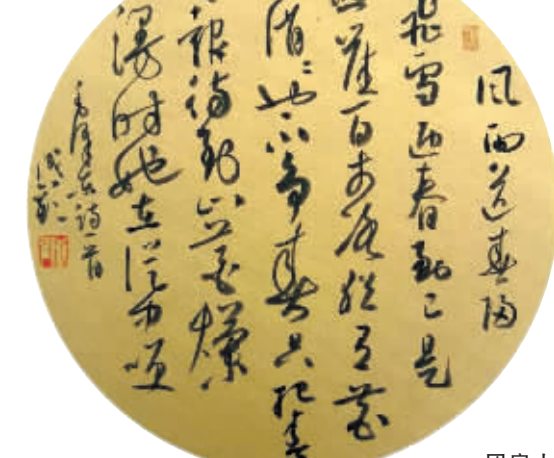 风雨送春归
飞雪迎春到已是
崖百丈冰犹有花
俏々也不争春只把春
报待到山花烂
漫时她在丛中咲
毛泽东诗一首